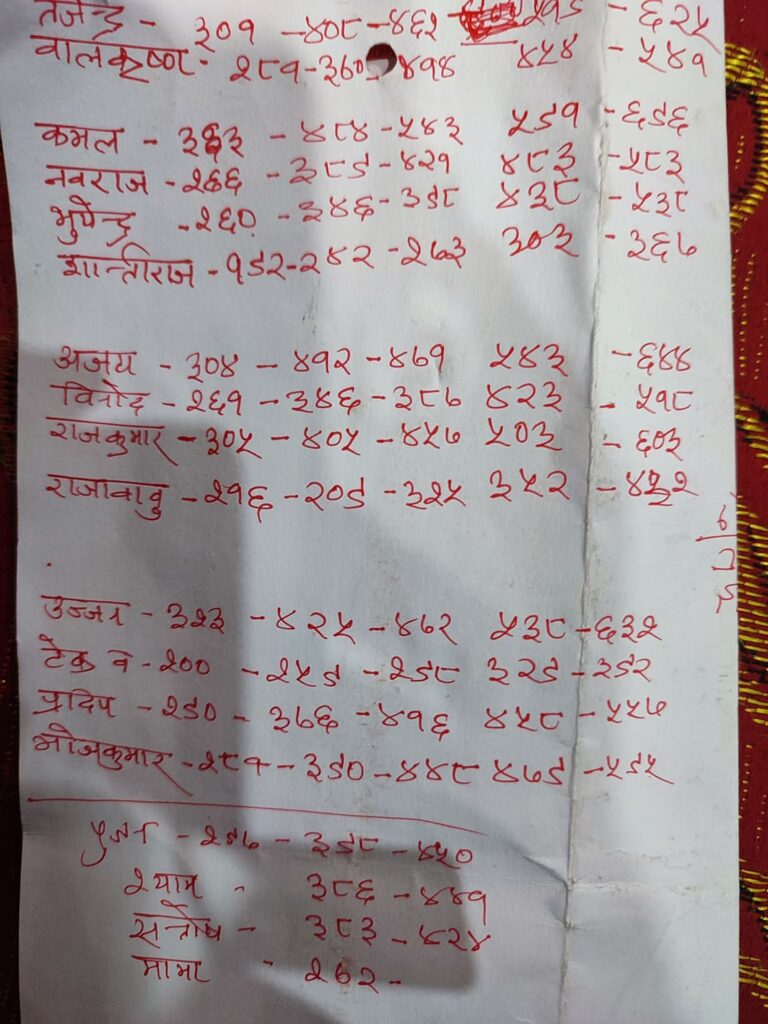 तेजेन्द्र - ३०१ - ४०८ - ४६२ ५१९ - ६२५
वालकृष्ण - २८१ - ३६० ४१४ ४५४ - ५४१
कमल - ३६३ - ४८४ - ५४३ ५९१ - ६९६
नवराज - २६६ - ३८९ - ४२१ ४८३ - ५८३
भुपेन्द्र - २६० - ३४६ - ३९८ ४३८ - ५३८
शान्तीराज - १९२ - २४२ - २७३ ३०३ - ३६७
अजय - ३०४ - ४१२ - ४७१ ५४३ - ६४४
विनोद - २६१ - ३४६ - ३८७ ४२३ - ५१८
राजकुमार - ३०५ - ४०५ - ४५७ ५०३ - ६०३
राजावावु - २१६ - २०९ - ३२५ ३५२ -
उज्जन - ३२३ - ४२५ - ४७२ ५३८ - ६३२
टेक व - २०० - २५९ - २९८ ३२९ - ३९२
प्रदिप - २९० - ३७६ - ४१६ ४५८ - ५५७
भोजकुमार - २८१ - ३९० - ४४८ ४७९ - ५९५
पुर्जन - - ३९८ - ४५०
श्याम - ३८६ - ४४१
सन्तोष - ३८३ - ४२४
मामा - २७२ -